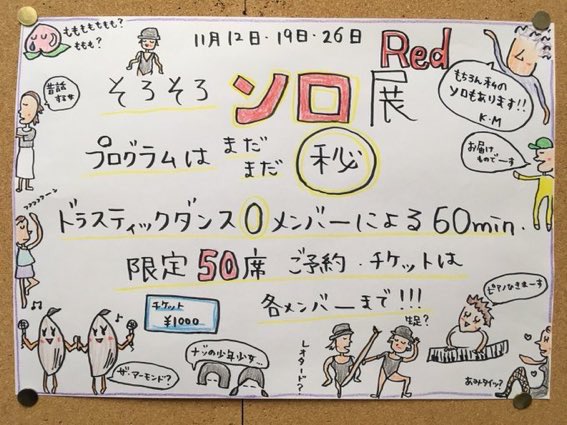 ももももももも?
ももも?
11月12日・19日・26日
Red
そろそろ ソロ展
昔話
するよ
もちろん私の
ソロもあります!!
K・M
プログラムは まだ
まだ 秘
お届け
ものでーす
ドラスティックダンス0メンバーによる60min.
限定50席 ご予約・チケットは
各メンバーまで!!!
チケット
¥1000
ザ・アーモンド?
ナゾの少年少女…
レオタード?
生足?
ピアノなきまーす
あみタイツ?